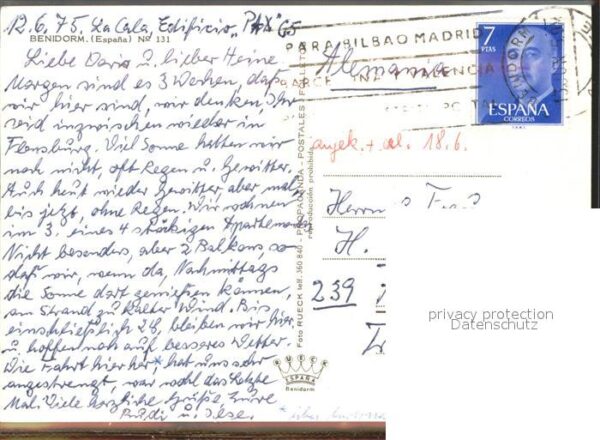 12.6.75. La Cala, Edificio „PAX" G5
BENIDORM. (España) Nº 131
Liebe Dora u. lieber Heine
Morgen sind es 3 Wochen, daß
wir hier sind, wir denken, Ihr
seid inzwischen wieder in
Flensburg. Viel Sonne hatten wir
noch nicht, oft Regen u. Gewitter.
Auch heut wieder Gewitter, aber
bis jetzt, ohne Regen. Wir wohnen
im 3. eines 4 stöckigen Apartements
Nicht besonders, aber 2 Balkons, so
daß wir, wenn da, Nachmittags
die Sonne dort genießen können,
am Strand zu kalter Wind. Bis
einschließlich 28, bleiben wir hier,
u. hoffen noch auf besseres Wetter.
Die Fahrt hierher* hat uns sehr
angestrengt, war wohl das letzte
Mal. Viele herzliche Grüße Eure
Rudi u. Ilse.
Foto RUECK telf. 360 840 - PROPAGANDA - POSTALES
reproducción prohibida
RUECK
ESPAÑA
Benidorm
PARA BILBAO MADRID
BENIDORM
7
PTAS
ESPAÑA
CORREOS
Alemania
angek. + al. 18.6.
Herrn
H.
239
privacy protection
Datenschutz